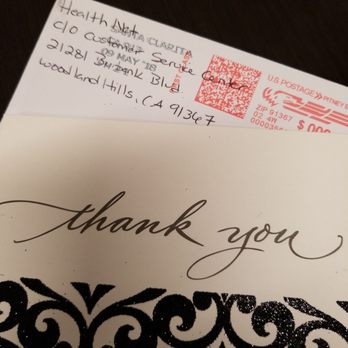 Health Net
C/O Customer Service Center
21281 Burbank Blvd
Woodland Hills, CA 91367
SANTA CLARITA
09 MAY '18
FIRST CLASS
U.S. POSTAGE >> PITNEY B
ZIP 91367
02 4W
$ 000
00003
thank you